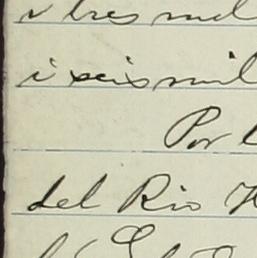 i tres mil
i seis mil
Por
del Rio